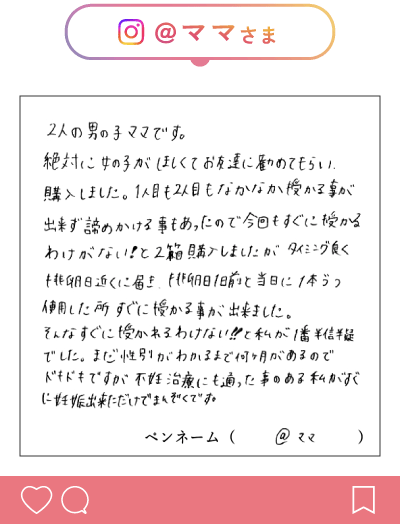 @ママさま
2人の男の子ママです。
絶対に女の子がほしくてお友達に勧めてもらい、
購入しました。1人目も2人目もなかなか授かる事が
出来ず諦めかける事もあったので今回もすぐに授かる
わけがない!と2箱購入しましたがタイミング良く
排卵日近くに届き、排卵日1日前と当日に1本ずつ
使用した所すぐに授かる事が出来ました。
そんなすぐに授かれるわけない!!と私が1番半信半疑
でした。まだ性別がわかるまで何ヶ月があるので
ドキドキですが不妊治療にも通った事のある私がすぐ
に妊娠出来ただけでまんぞくです。
ペンネーム( @ママ )